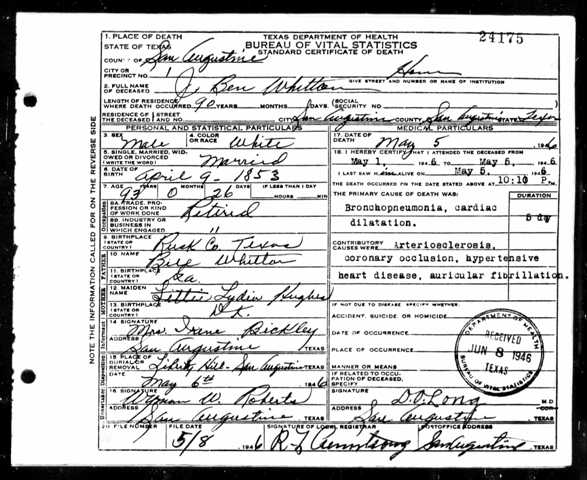 TEXAS DEPARTMENT OF HEALTH
BUREAU OF VITAL STATISTICS
STANDARD CERTIFICATE OF DEATH
24175
1. PLACE OF DEATH
STATE OF TEXAS
COUNTY OF San Augustine
CITY OR PRECINCT NO. 1 Home
GIVE STREET AND NUMBER OR NAME OF INSTITUTION
2. FULL NAME OF DECEASED J. Ben Whitton
LENGTH OF RESIDENCE WHERE DEATH OCCURRED 90 YEARS MONTHS DAYS (SOCIAL SECURITY NO.
RESIDENCE OF THE DECEASED STREET AND NO. CITY San Augustine COUNTY San Augustine STATE Texas
PERSONAL AND STATISTICAL PARTICULARS
3. SEX Male 4. COLOR OR RACE White
5. SINGLE, MARRIED, WIDOWED OR DIVORCED (WRITE THE WORD) Married
6. DATE OF BIRTH April 9 - 1853
7. AGE YEARS MONTHS DAYS IF LESS THAN 1 DAY
93 0 26 HOURS MIN.
8A. TRADE, PROFESSION OR KIND OF WORK DONE Retired
8B. INDUSTRY OR BUSINESS IN WHICH ENGAGED "
9. BIRTHPLACE (STATE OR COUNTRY) Rusk Co. Texas
10. NAME Bill Whitton
11. BIRTHPLACE (STATE OR COUNTRY) Ga.
12. MAIDEN NAME Lydia Hughes
13. BIRTHPLACE (STATE OR COUNTRY) D.K.
14. SIGNATURE Mrs. Irene Bickley
ADDRESS San Augustine TEXAS
15. PLACE OF BURIAL OR REMOVAL Liberty Hill - San Augustine TEXAS
DATE May 6th 1946
16. SIGNATURE Wyman W. Roberts
ADDRESS San Augustine TEXAS
MEDICAL PARTICULARS
17. DATE OF DEATH May 5 1946
18. I HEREBY CERTIFY THAT I ATTENDED THE DECEASED FROM
May 1, 1946 TO May 5, 1946
I LAST SAW him ALIVE ON May 5, 1946
THE DEATH OCCURRED ON THE DATE STATED ABOVE AT 10:10 P.M.
THE PRIMARY CAUSE OF DEATH WAS: DURATION
Bronchopneumonia, cardiac dilatation. 5 day
CONTRIBUTORY CAUSES WERE Arteriosclerosis,
coronary occlusion, hypertensive
heart disease, auricular fibrillation.
IF NOT DUE TO DISEASE SPECIFY WHETHER:
ACCIDENT, SUICIDE, OR HOMICIDE
DATE OF OCCURRENCE
PLACE OF OCCURRENCE
MANNER OR MEANS
IF RELATED TO OCCUPATION OF DECEASED, SPECIFY
DEPARTMENT OF HEALTH
RECEIVED
JUN 8 1946
TEXAS
BUREAU OF VITAL STATISTICS
SIGNATURE D.O. Long M.D.
ADDRESS San Augustine TEXAS
20. FILE NUMBER FILE DATE SIGNATURE OF LOCAL REGISTRAR POSTOFFICE ADDRESS
5/8 1946 R. L. Armstrong San Augustine TEXAS
NOTE THE INFORMATION CALLED FOR ON THE REVERSE SIDE